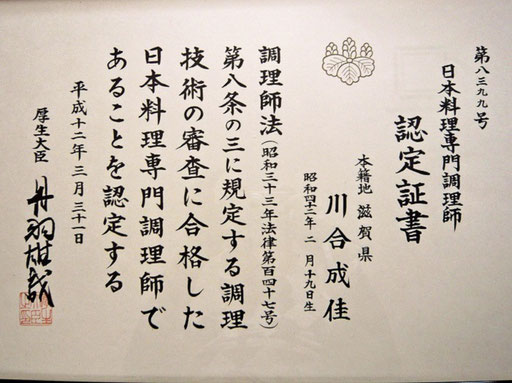 第八三九九号
日本料理専門調理師
認定証書
本籍地 滋賀県
川合成佳
昭和四十二年 二 月 十九日生
調理師法(昭和三十三年法律第百四十七号)
第八条の三に規定する調理
技術の審査に合格した
日本料理専門調理師で
あることを認定する
平成十二年 三月 三十一日
厚生大臣
丹羽雄哉